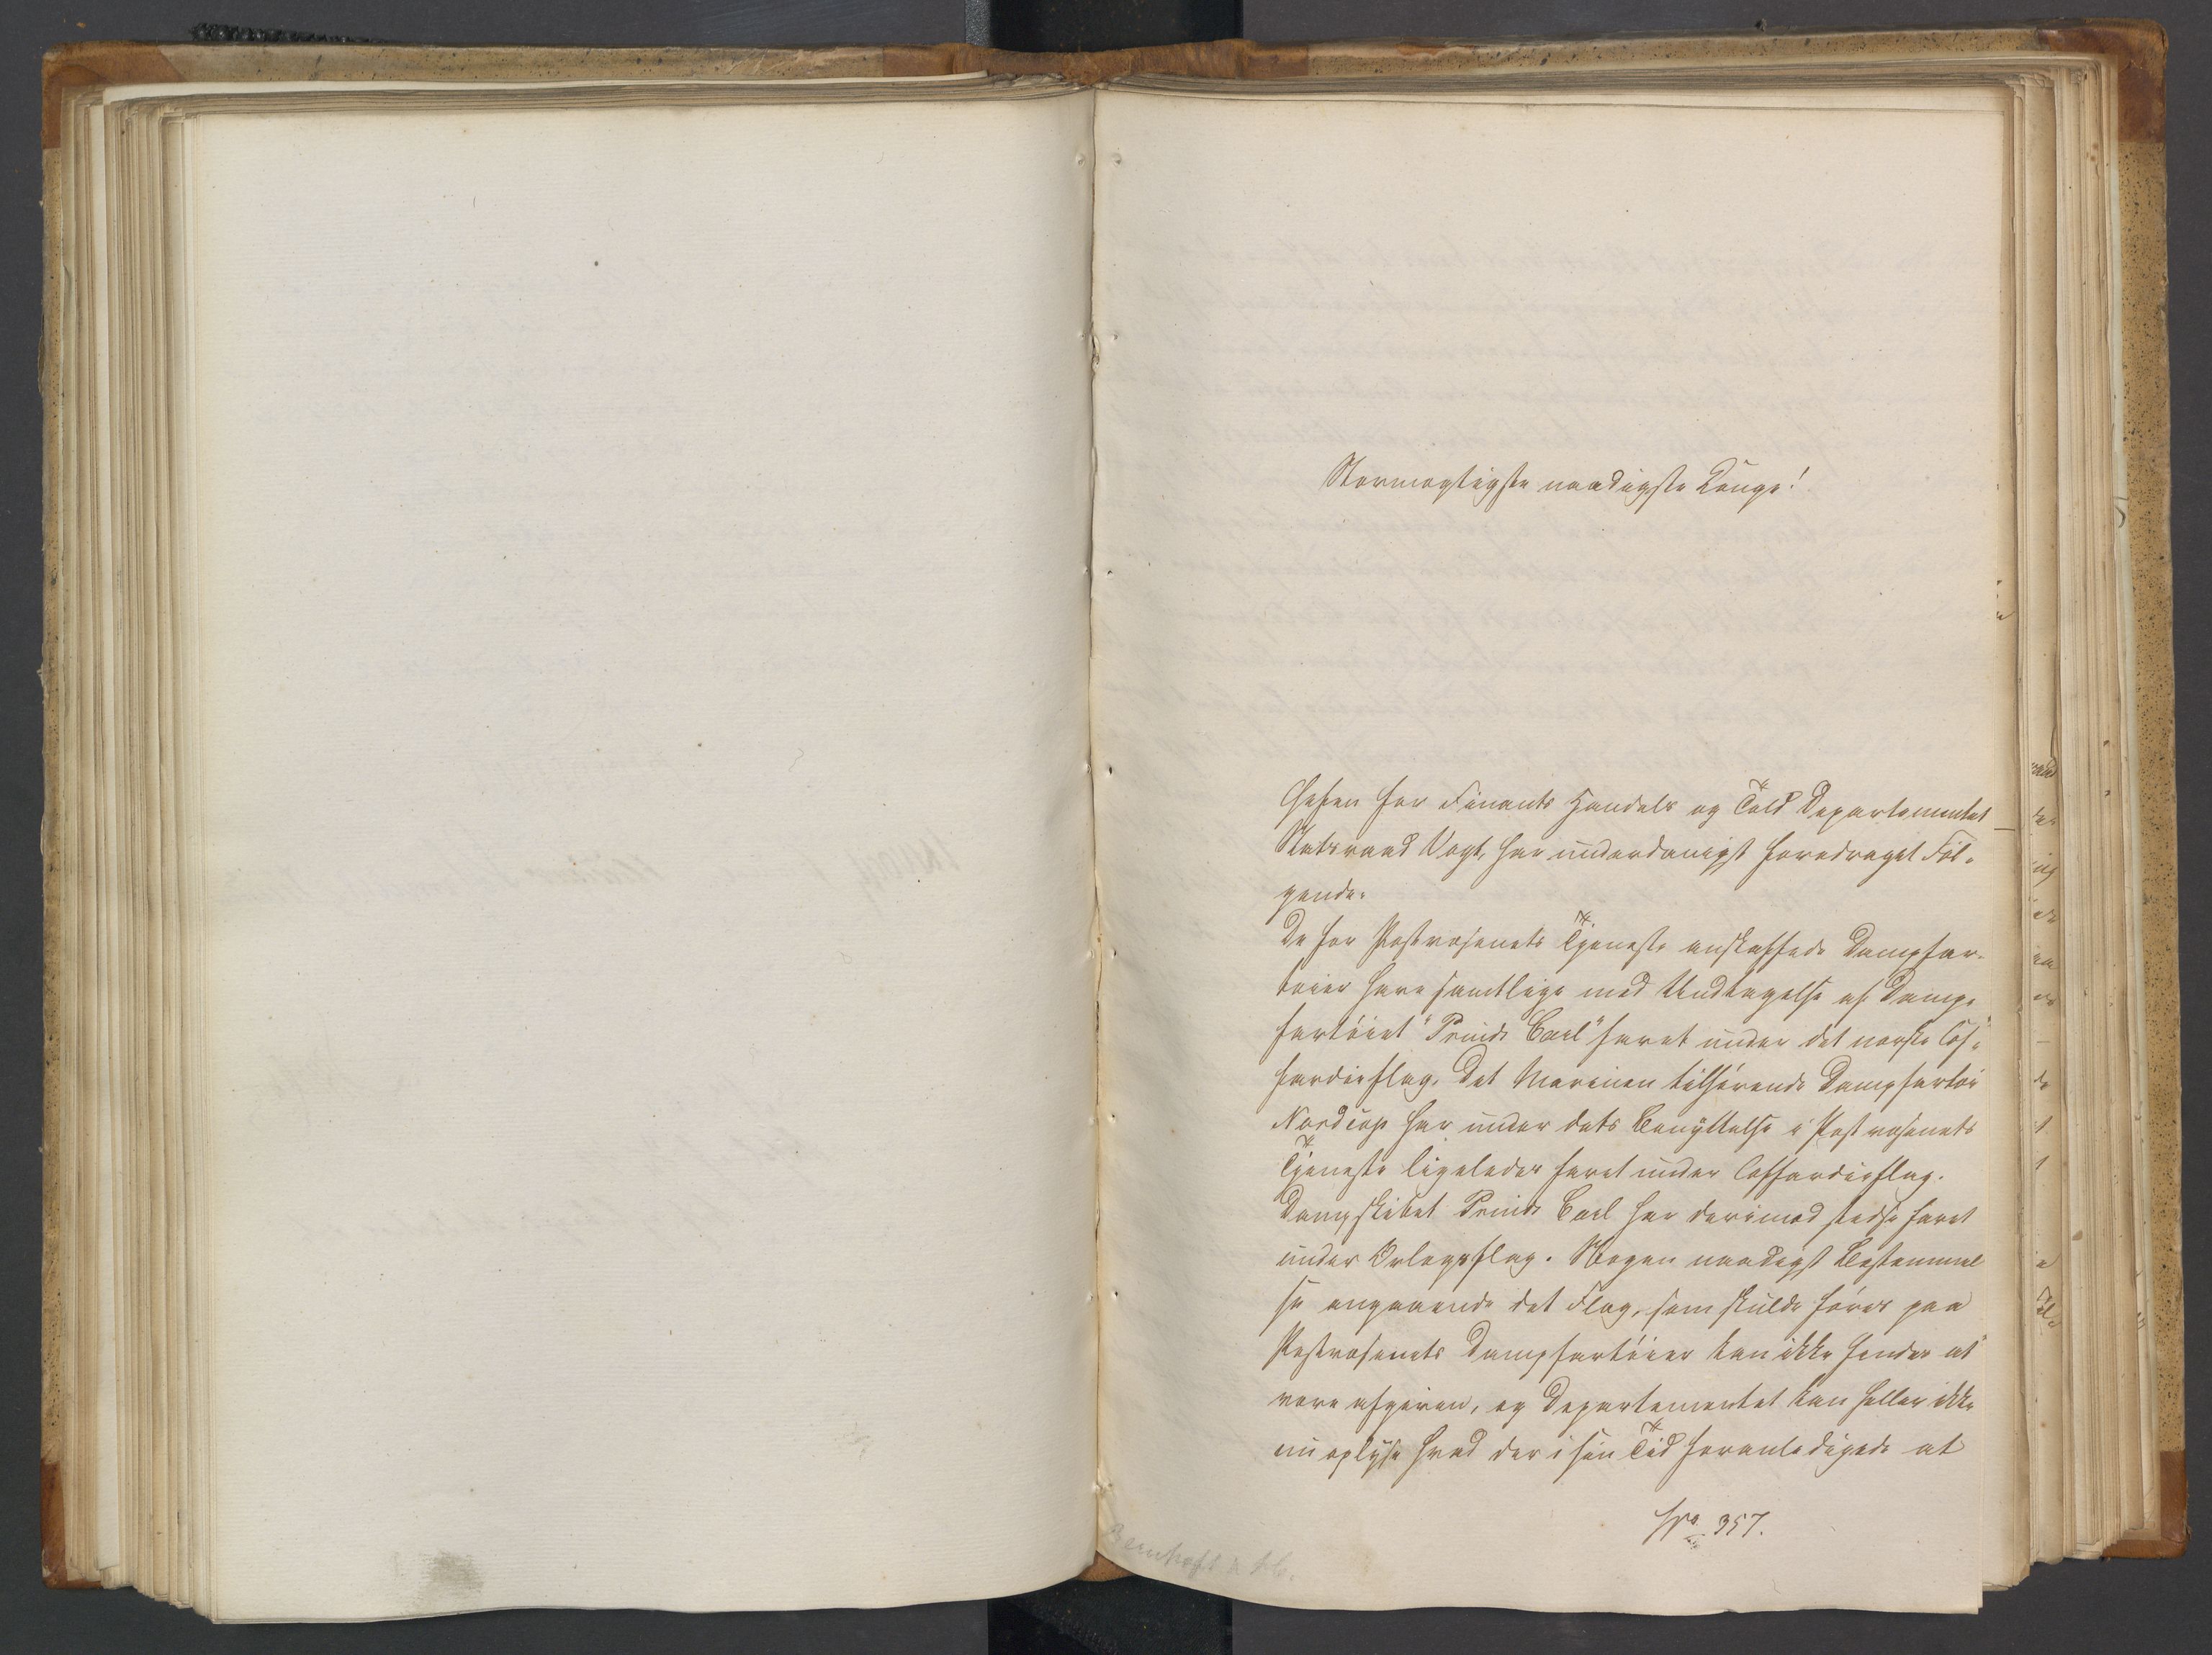 Stormægtigste naadigste Konge!
Chefen for Finants Handels og Told Departementet
Statsraad Vogt, har underdanigst foredraget Föl-
gende:
De for Postvæsenets Tjeneste anskaffede Dampfar-
töier have samtlige med Undtagelse af Damp-
fartöiet "Prinds Carl" faret under det norske Cof-
fardieflag. Det Marinen tilhörende Dampfartöi
Nordcap har under dets Benyttelse i Postvæsenets
Tjeneste ligeledes faret under Coffardieflag.
Dampskibet Prinds Carl har derimod stedse faret
under Orlogsflag. Nogen naadigst Bestemmel
se angaaende det Flag, som skulde föres paa
Postvæsenets Dampfartöier kan ikke sees at
være afgiven, og Departementet kan heller ikke
nu oplyse hvad der i sin Tid foranledigede at
No. 357.